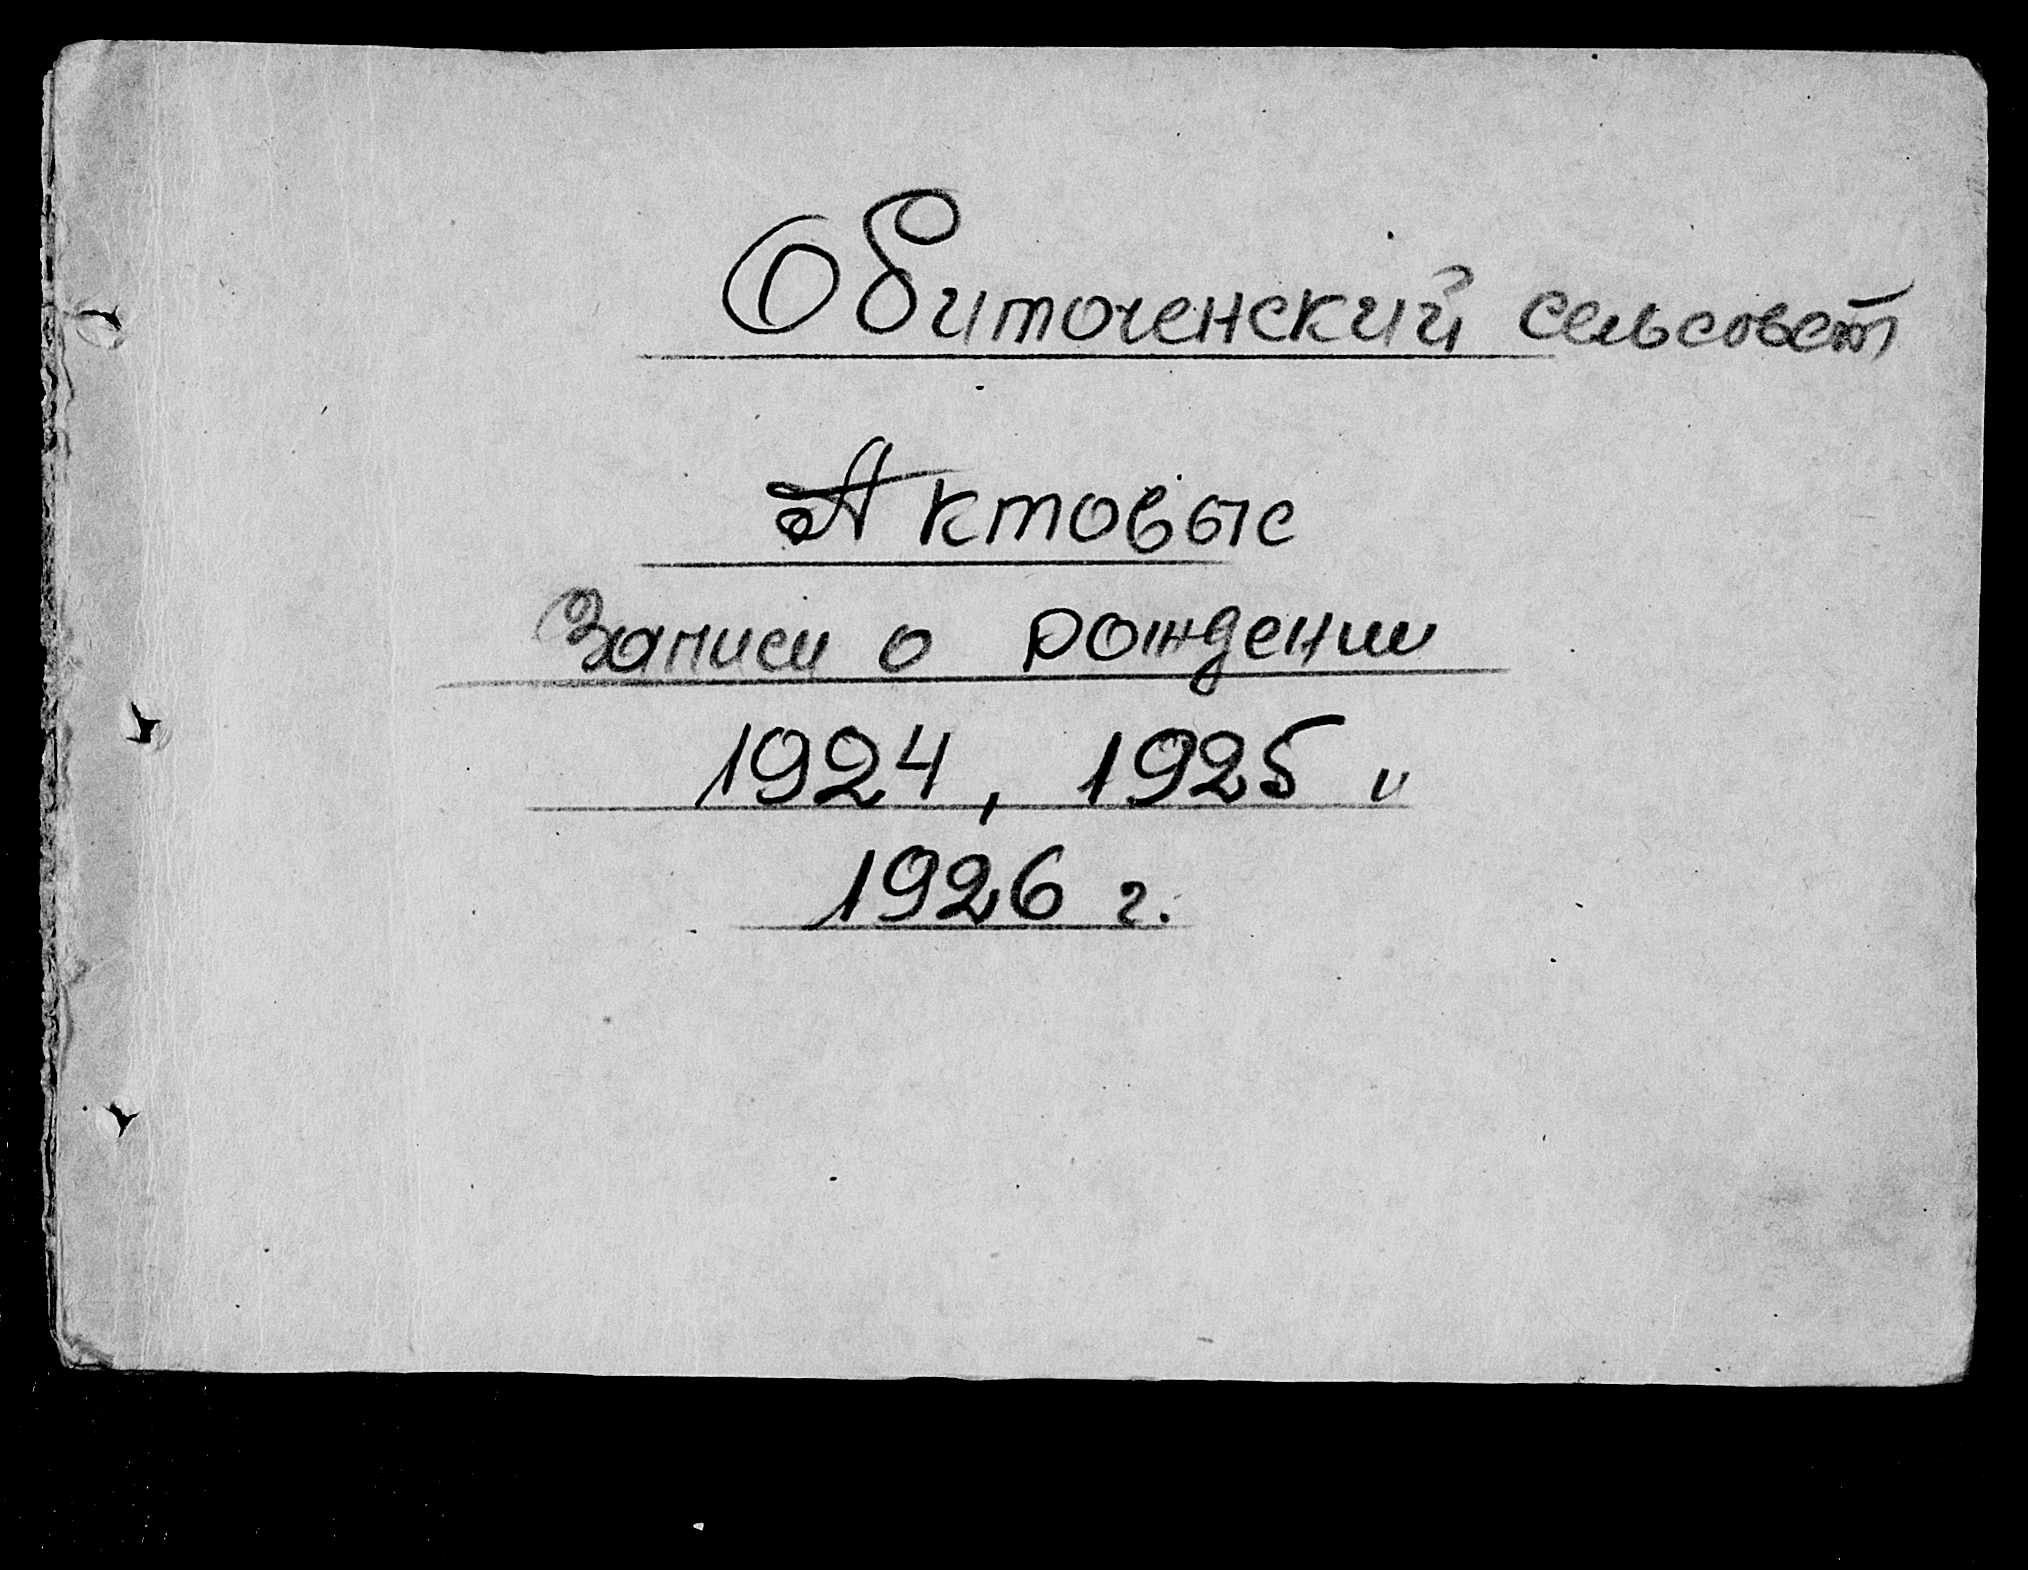 Обиточенский сельсовет
Актовые
Записи о рождении
1924, 1925 и
1926 г.